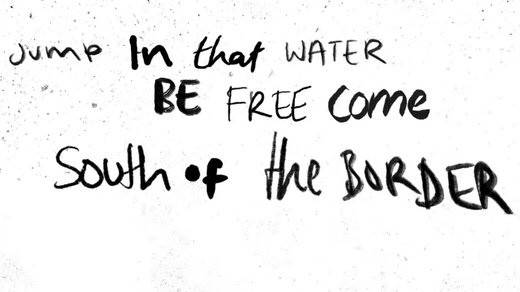 Jump In that WATER
BE FREE Come
South of the BORDER